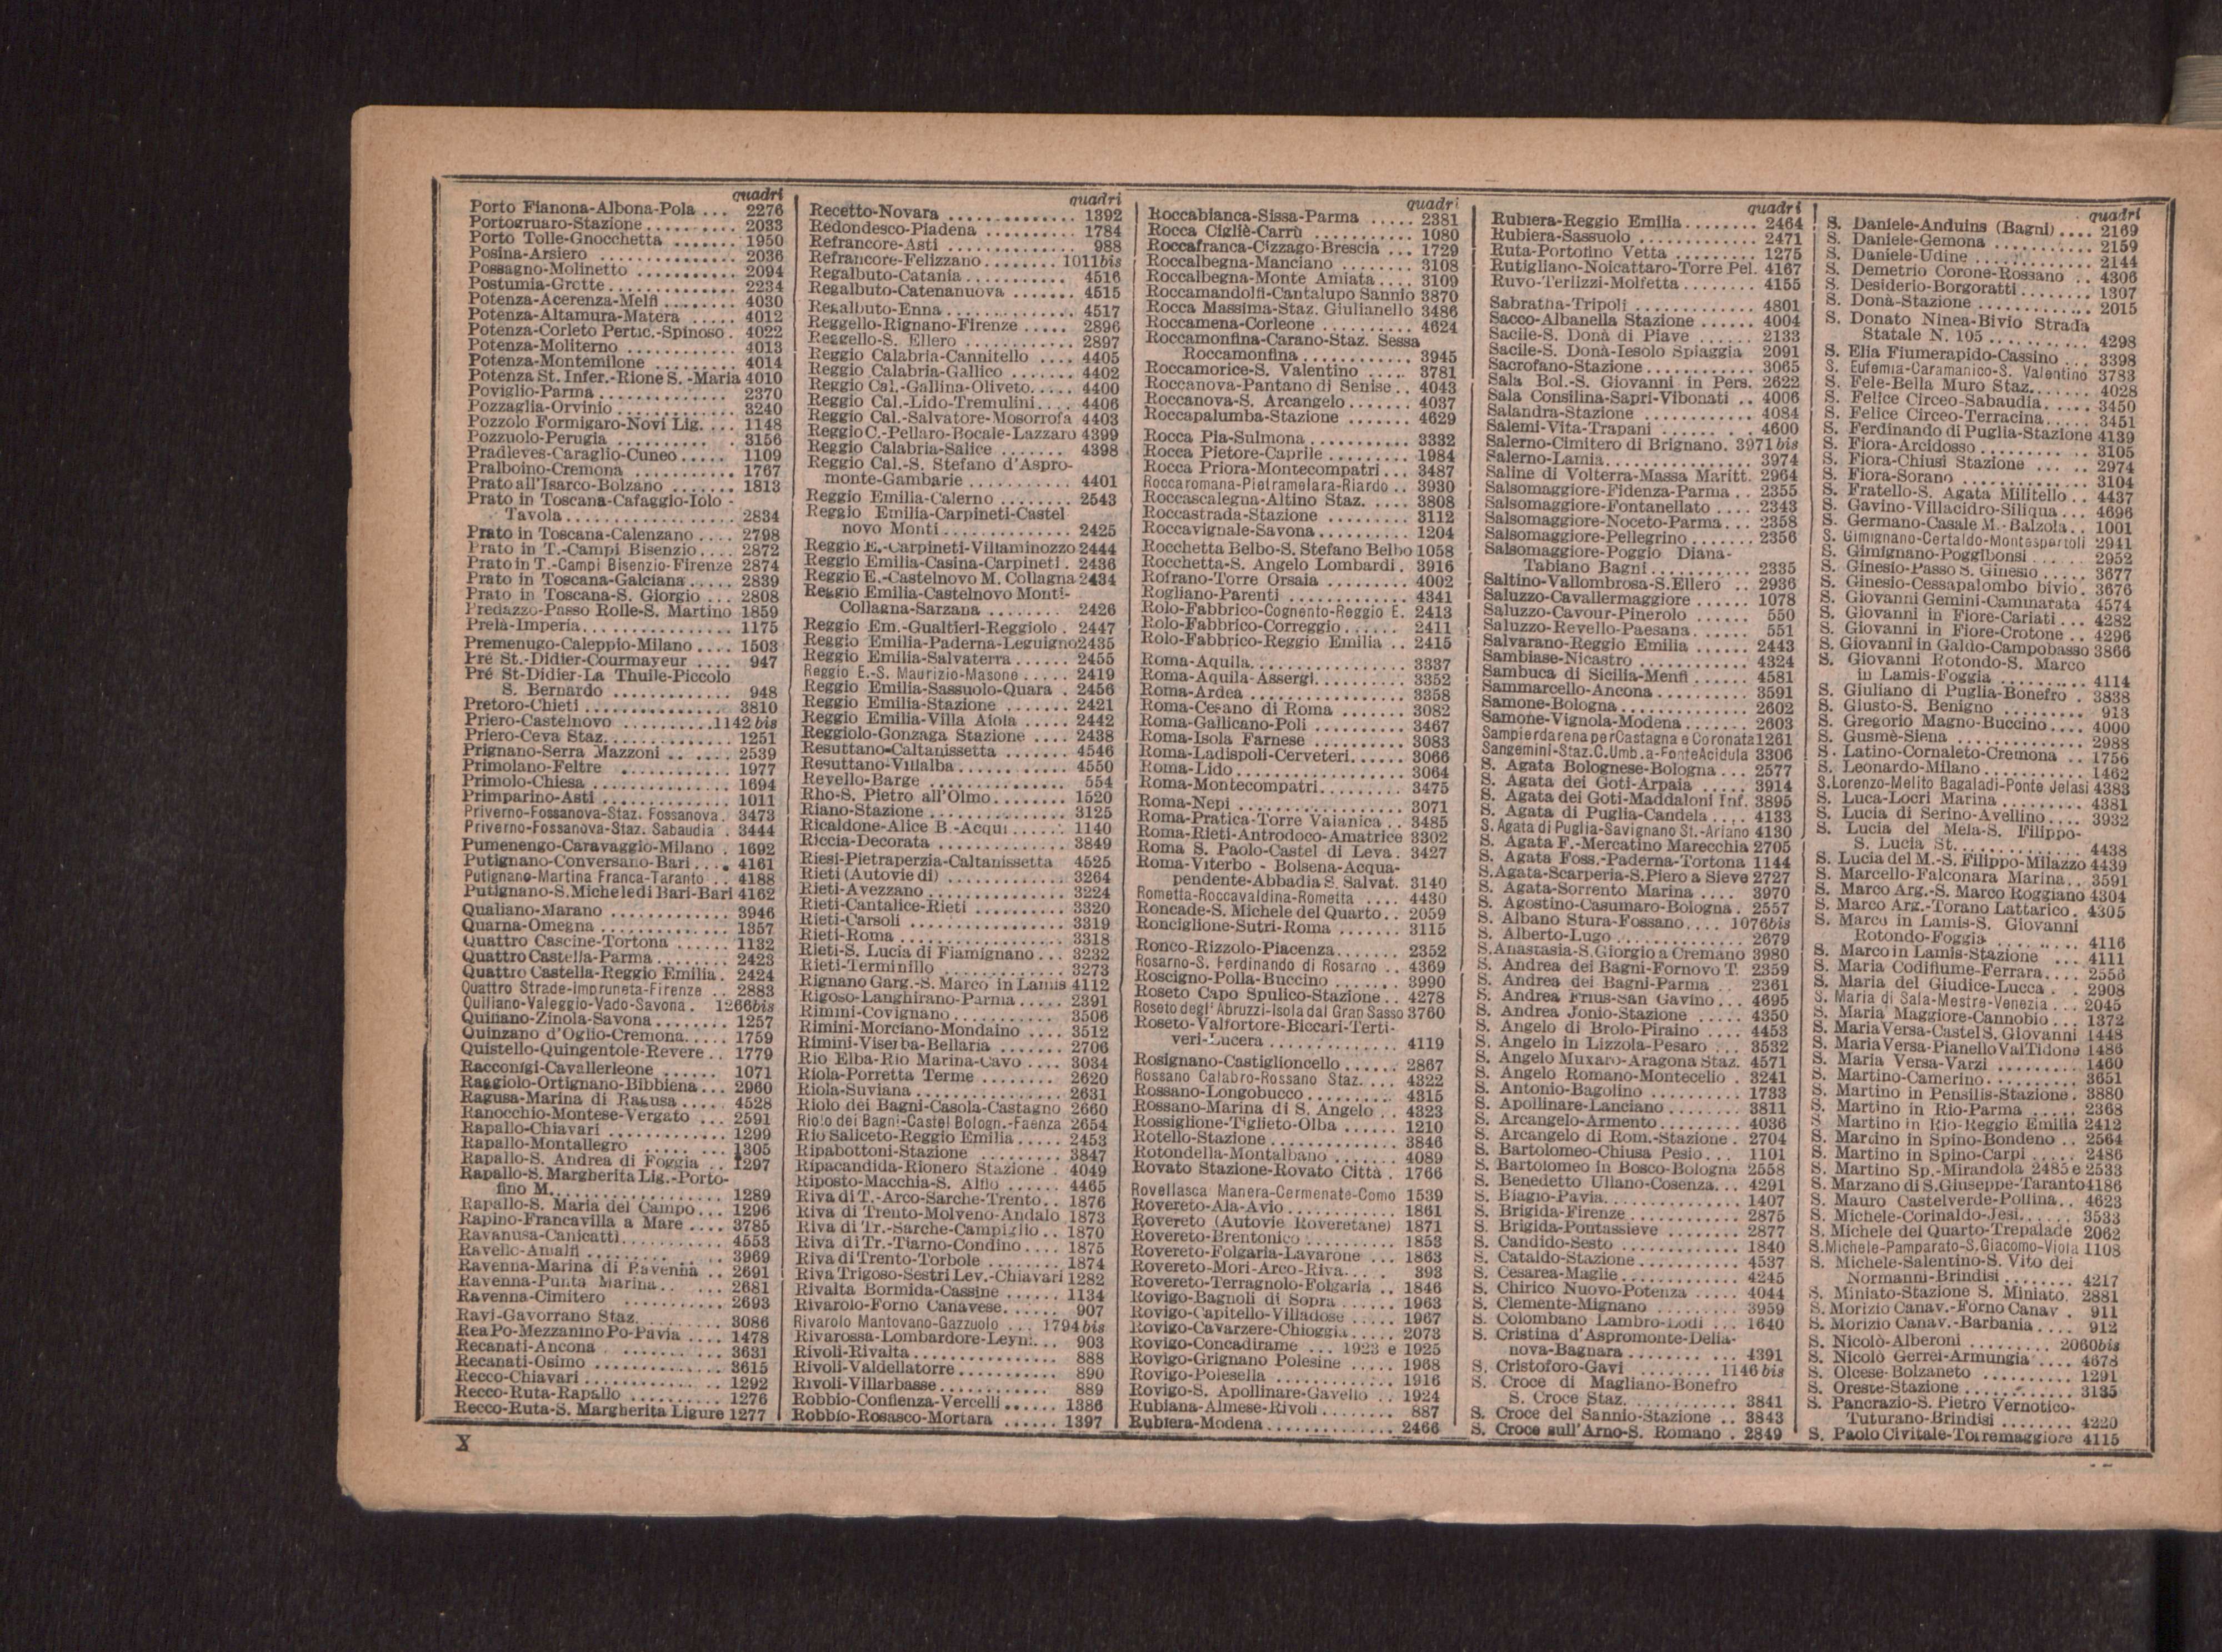 quadri
Porto Fianona-Albona-Pola ... 2276
Portogruaro-Stazione .......... 2033
Porto Tolle-Gnocchetta ....... 1950
Posina-Arsiero .............. 2036
Possagno-Molinetto ........... 2094
Postumia-Grotte .............. 2234
Potenza-Acerenza-Melfi ........ 4030
Potenza-Altamura-Matera ..... 4012
Potenza-Corleto Pertic.-Spinoso . 4022
Potenza-Moliterno ........... 4013
Potenza-Montemilone ......... 4014
Potenza St. Infer.-Rione S. -Maria 4010
Poviglio-Parma ............. 2370
Pozzaglia-Orvinio ............ 3240
Pozzolo Formigaro-Novi Lig. ... 1148
Pozzuolo-Perugia .......... . 3156
Pradleves-Caraglio-Cuneo ..... 1109
Pralboino-Cremona ........... 1767
Prato all'Isarco-Bolzano ....... 1813
Prato in Toscana-Cafaggio-Iolo -
Tavola .................. 2834
Prato in Toscana-Calenzano .... 2798
Prato in T.-Campi Bisenzio .... 2872
Prato in T.-Campi Bisenzio-Firenze 2874
Prato in Toscana-Galciana ..... 2839
Prato in Toscana-S. Giorgio ... 2808
Predazzo-Passo Rolle-S. Martino 1859
Prelà-Imperia ............... 1175
Premenugo-Caleppio-Milano .... 1503
Pré St.-Didier-Courmayeur .... 947
Pré St-Didier-La Thuile-Piccolo
S. Bernardo ............ 948
Pretoro-Chieti .............. 3810
Priero-Castelnovo ..........1142 bis
Priero-Ceva Staz. ............. 1251
Prignano-Serra Mazzoni .. .... 2539
Primolano-Feltre ............ 1977
Primolo-Chiesa .............. 1694
Primparino-Asti ............. 1011
Priverno-Fossanova-Staz. Fossanova . 3473
Priverno-Fossanova-Staz. Sabaudia . 3444
Pumenengo-Caravaggio-Milano . 1692
Putignano-Conversano-Bari .... 4161
Putignano-Martina Franca-Taranto .. 4188
Putignano-S.Michele di Bari-Bari 4162
Qualiano-Marano ............ 3946
Quarna-Omegna ............. 1357
Quattro Cascine-Tortona ...... 1132
Quattro Castella-Parma ........ 2423
Quattro Castella-Reggio Emilia . 2424
Quattro Strade-Impruneta-Firenze .. 2883
Quiliano-Valeggio-Vado-Savona . 1266bis
Quiliano-Zinola-Savona ........ 1257
Quinzano d'Oglio-Cremona ..... 1759
Quistello-Quingentole-Revere .. 1779
Racconigi-Cavallerleone ...... 1071
Raggiolo-Ortignano-Bibbiena ... 2960
Ragusa-Marina di Ragusa ..... 4528
Ranocchio-Montese-Vergato ... 2591
Rapallo-Chiavari ............ 1299
Rapallo-Montallegro ......... 1305
Rapallo-S. Andrea di Foggia .. 1297
Rapallo-S. Margherita Lig.-Porto-
fino M. .................. 1289
Rapallo-S. Maria del Campo ... 1296
Rapino-Francavilla a Mare .... 3785
Ravanusa-Canicattì ........... 4553
Ravello-Amalfi ......... 3969
Ravenna-Marina di Ravenna .. 2691
Ravenna-Punta Marina .. ... 2681
Ravenna-Cimitero ........... 2693
Ravi-Gavorrano Staz. ......... 3086
Rea Po-Mezzanino Po-Pavia .... 1478
Recanati-Ancona ........... 3631
Recanati-Osimo ............. 3615
Recco-Chiavari .............. 1292
Recco-Ruta-Rapallo .......... 1276
Recco-Ruta-S. Margherita Ligure 1277
X
quadri
Recetto-Novara .............. 1392
Redondesco-Piadena .......... 1784
Refrancore-Asti ............. 988
Refrancore-Felizzano ........ 1011bis
Regalbuto-Catania ........... 4516
Regalbuto-Catenanuova ....... 4515
Regalbuto-Enna .............. 4517
Reggello-Rignano-Firenze ..... 2896
Reggello-S. Ellero ........... 2897
Reggio Calabria-Cannitello .... 4405
Reggio Calabria-Gallico ....... 4402
Reggio Cal.-Gallina-Oliveto .... 4400
Reggio Cal.-Lido-Tremulini .... 4406
Reggio Cal.-Salvatore-Mosorrofa 4403
Reggio C.-Pellaro-Bocale-Lazzaro 4399
Reggio Calabria-Salice ....... 4398
Reggio Cal.-S. Stefano d'Aspro-
monte-Gambarie ........... 4401
Reggio Emilia-Calerno ........ 2543
Reggio Emilia-Carpineti-Castel
novo Monti ............. 2425
Reggio E.-Carpineti-Villaminozzo 2444
Reggio Emilia-Casina-Carpineti . 2436
Reggio E.-Castelnovo M. Collagna 2434
Reggio Emilia-Castelnovo Monti-
Collagna-Sarzana ........ 2426
Reggio Em.-Gualtieri-Reggiolo . 2447
Reggio Emilia-Paderna-Leguigno2435
Reggio Emilia-Salvaterra ...... 2455
Reggio E.-S. Maurizio-Masone ..... 2419
Reggio Emilia-Sassuolo-Quara . 2456
Reggio Emilia-Stazione ....... 2421
Reggio Emilia-Villa Aiola ..... 2442
Reggiolo-Gonzaga Stazione .... 2438
Resuttano-Caltanissetta ....... 4546
Resuttano-Villalba ........... 4550
Revello-Barge .............. 554
Rho-S. Pietro all'Olmo ........ 1520
Riano-Stazione .............. 3125
Ricaldone-Alice B.-Acqui ...... 1140
Riccia-Decorata ............. 3849
Riesi-Pietraperzia-Caltanissetta 4525
Rieti (Autovie di) ............ 3264
Rieti-Avezzano .............. 3224
Rieti-Cantalice-Rieti .......... 3320
Rieti-Carsoli ................ 3319
Rieti-Roma ................. 3318
Rieti-S. Lucia di Fiamignano ... 3232
Rieti-Terminillo ............. 3273
Rignano Garg.-S. Marco in Lamis 4112
Rigoso-Langhirano-Parma ..... 2391
Rimini-Covignano ........... 3506
Rimini-Morciano-Mondaino .... 3512
Rimini-Viserba-Bellaria ....... 2706
Rio Elba-Rio Marina-Cavo .... 3034
Riola-Porretta Terme ........ 2620
Riola-Suviana ............... 2631
Riolo dei Bagni-Casola-Castagno 2660
Riolo dei Bagni-Castel Bologn.-Faenza 2654
Rio Saliceto-Reggio Emilia ..... 2453
Ripabottoni-Stazione ......... 3847
Ripacandida-Rionero Stazione . 4049
Riposto-Macchia-S. Alfio ...... 4465
Riva di T.-Arco-Sarche-Trento .. 1876
Riva di Trento-Molveno-Andalo 1873
Riva di Tr.-Sarche-Campiglio .. 1870
Riva di Tr.-Tiarno-Condino .... 1875
Riva di Trento-Torbole ....... 1874
Riva Trigoso-Sestri Lev.-Chiavari 1282
Rivalta Bormida-Cassine ...... 1134
Rivarolo-Forno Canavese ...... 907
Rivarolo Mantovano-Gazzuolo ... 1794 bis
Rivarossa-Lombardore-Leynì... 903
Rivoli-Rivalta ................ 888
Rivoli-Valdellatorre ........... 890
Rivoli-Villarbasse ............ 889
Robbio-Confienza-Vercelli ...... 1386
Robbio-Rosasco-Mortara ...... 1397
quadri
Roccabianca-Sissa-Parma ..... 2381
Rocca Cigliè-Carrù ........... 1080
Roccafranca-Cizzago-Brescia ... 1729
Roccalbegna-Manciano ........ 3108
Roccalbegna-Monte Amiata .... 3109
Roccamandolfi-Cantalupo Sannio 3870
Rocca Massima-Staz. Giulianello 3486
Roccamena-Corleone .......... 4624
Roccamonfina-Carano-Staz. Sessa
Roccamonfina ............. 3945
Roccamorice-S. Valentino ..... 3781
Roccanova-Pantano di Senise .. 4043
Roccanova-S. Arcangelo ....... 4037
Roccapalumba-Stazione ....... 4629
Rocca Pia-Sulmona ........... 3332
Rocca Pietore-Caprile ......... 1984
Rocca Priora-Montecompatri ... 3487
Roccaromana-Pietramelara-Riardo .. 3930
Roccascalegna-Altino Staz. .... 3808
Roccastrada-Stazione ......... 3112
Roccavignale-Savona .......... 1204
Rocchetta Belbo-S. Stefano Belbo 1058
Rocchetta-S. Angelo Lombardi . 3916
Rofrano-Torre Orsaia ........ 4002
Rogliano-Parenti ............ 4341
Rolo-Fabbrico-Cognento-Reggio E. 2413
Rolo-Fabbrico-Correggio ...... 2411
Rolo-Fabbrico-Reggio Emilia .. 2415
Roma-Aquila ................ 3337
Roma-Aquila-Assergi .......... 3352
Roma-Ardea ................. 3358
Roma-Cesano di Roma ....... 3082
Roma-Gallicano-Poli .......... 3467
Roma-Isola Farnese .......... 3083
Roma-Ladispoli-Cerveteri ...... 3066
Roma-Lido .................. 3064
Roma-Montecompatri ......... 3475
Roma-Nepi ................. 3071
Roma-Pratica-Torre Vaianica .. 3485
Roma-Rieti-Antrodoco-Amatrice 3302
Roma S. Paolo-Castel di Leva . 3427
Roma-Viterbo - Bolsena-Acqua-
pendente-Abbadia S. Salvat. 3140
Rometta-Roccavaldina-Rometta .... 4430
Roncade-S. Michele del Quarto .. 2059
Ronciglione-Sutri-Roma ....... 3115
Ronco-Rizzolo-Piacenza ........ 2352
Rosarno-S. Ferdinando di Rosarno .. 4369
Roscigno-Polla-Buccino ....... 3990
Roseto Capo Spulico-Stazione .. 4278
Roseto degl'Abruzzi-Isola dal Gran Sasso 3760
Roseto-Valfortore-Biccari-Terti-
veri-Lucera .............. 4119
Rosignano-Castiglioncello ...... 2867
Rossano Calabro-Rossano Staz. ... 4322
Rossano-Longobucco .......... 4315
Rossano-Marina di S. Angelo .. 4323
Rossiglione-Tiglieto-Olba ...... 1210
Rotello-Stazione ............. 3846
Rotondella-Montalbano ....... 4089
Rovato Stazione-Rovato Città . 1766
Rovellasca Manera-Cermenate-Como 1539
Rovereto-Ala-Avio ............ 1861
Rovereto (Autovie Roveretane) 1871
Rovereto-Brentonico .......... 1853
Rovereto-Folgaria-Lavarone ... 1863
Rovereto-Mori-Arco-Riva .... . 393
Rovereto-Terragnolo-Folgaria .. 1846
Rovigo-Bagnoli di Sopra ...... 1963
Rovigo-Capitello-Villadose ..... 1967
Rovigo-Cavarzere-Chioggia ..... 2073
Rovigo-Concadirame ... 1923 e 1925
Rovigo-Grignano Polesine ..... 1968
Rovigo-Polesella ............. 1916
Rovigo-S. Apollinare-Gavello .. 1924
Rubiana-Almese-Rivoli ........ 887
Rubiera-Modena .............. 2466
quadri
Rubiera-Reggio Emilia ........ 2464
Rubiera-Sassuolo ............ 2471
Ruta-Portofino Vetta ......... 1275
Rutigliano-Noicattaro-Torre Pel. 4167
Ruvo-Terlizzi-Molfetta ........ 4155
Sabratha-Tripoli ............. 4801
Sacco-Albanella Stazione ...... 4004
Sacile-S. Donà di Piave ...... 2133
Sacile-S. Donà-Iesolo Spiaggia 2091
Sacrofano-Stazione ........... 3065
Sala Bol.-S. Giovanni in Pers. 2622
Sala Consilina-Sapri-Vibonati .. 4006
Salandra-Stazione ........... 4084
Salemi-Vita-Trapani ...... . . 4600
Salerno-Cimitero di Brignano . 3971bis
Salerno-Lamia ............... 3974
Saline di Volterra-Massa Maritt. 2964
Salsomaggiore-Fidenza-Parma .. 2355
Salsomaggiore-Fontanellato ... 2343
Salsomaggiore-Noceto-Parma ... 2358
Salsomaggiore-Pellegrino ....... 2356
Salsomaggiore-Poggio Diana-
Tabiano Bagni ........... 2335
Saltino-Vallombrosa-S.Ellero .. 2936
Saluzzo-Cavallermaggiore ...... 1078
Saluzzo-Cavour-Pinerolo ...... 550
Saluzzo-Revello-Paesana ...... 551
Salvarano-Reggio Emilia ...... 2443
Sambiase-Nicastro ........... 4324
Sambuca di Sicilia-Menfi ...... 4581
Sammarcello-Ancona .......... 3591
Samone-Bologna ............. 2602
Samone-Vignola-Modena ....... 2603
Sampierdarena per Castagna e Coronata 1261
Sangemini-Staz.C.Umb.a-FonteAcidula 3306
S. Agata Bolognese-Bologna ... 2577
S. Agata dei Goti-Arpaia ..... 3914
S. Agata dei Goti-Maddaloni Inf. 3895
S. Agata di Puglia-Candela .... 4133
S. Agata di Puglia-Savignano St.-Ariano 4130
S. Agata F.-Mercatino Marecchia 2705
S. Agata Foss.-Paderna-Tortona 1144
S.Agata-Scarperia-S.Piero a Sieve 2727
S. Agata-Sorrento Marina .... 3970
S. Agostino-Casumaro-Bologna . 2557
S. Albano Stura-Fossano .... 1076bis
S. Alberto-Lugo ............. 2679
S.Anastasia-S.Giorgio a Cremano 3980
S. Andrea dei Bagni-Fornovo T. 2359
S. Andrea dei Bagni-Parma .. 2361
S. Andrea Frius-San Gavino ... 4695
S. Andrea Jonio-Stazione ..... 4350
S. Angelo di Brolo-Piraino .... 4453
S. Angelo in Lizzola-Pesaro ... 3532
S. Angelo Muxaro-Aragona Staz. 4571
S. Angelo Romano-Montecelio . 3241
S. Antonio-Bagolino .......... 1733
S. Apollinare-Lanciano ........ 3811
S. Arcangelo-Armento ......... 4036
S. Arcangelo di Rom.-Stazione . 2704
S. Bartolomeo-Chiusa Pesio ... 1101
S. Bartolomeo in Bosco-Bologna 2558
S. Benedetto Ullano-Cosenza ... 4291
S. Biagio-Pavia .............. 1407
S. Brigida-Firenze ........... 2875
S. Brigida-Pontassieve ........ 2877
S. Candido-Sesto ............ 1840
S. Cataldo-Stazione ........... 4537
S. Cesarea-Maglie ............ 4245
S. Chirico Nuovo-Potenza ..... 4044
S. Clemente-Mignano ......... 3959
S. Colombano Lambro-Lodi ... 1640
S. Cristina d'Aspromonte-Delia-
nova-Bagnara ........ ... 4391
S. Cristoforo-Gavi ........ 1146 bis
S. Croce di Magliano-Bonefro
S. Croce Staz. ............ 3841
S. Croce del Sannio-Stazione .. 3843
S. Croce sull'Arno-S. Romano . 2849
quadri
S. Daniele-Anduins (Bagni) .... 2169
S. Daniele-Gemona ........... 2159
S. Daniele-Udine ............. 2144
S. Demetrio Corone-Rossano .. 4306
S. Desiderio-Borgoratti ........ 1307
S. Donà-Stazione ............ 2015
S. Donato Ninea-Bivio Strada
Statale N. 105 ........... 4298
S. Elia Fiumerapido-Cassino ... 3398
S. Eufemia-Caramanico-S. Valentino 3783
S. Fele-Bella Muro Staz. ...... 4028
S. Felice Circeo-Sabaudia ..... 3450
S. Felice Circeo-Terracina ..... 3451
S. Ferdinando di Puglia-Stazione 4139
S. Fiora-Arcidosso ........... 3105
S. Fiora-Chiusi Stazione ... .. 2974
S. Fiora-Sorano ............. 3104
S. Fratello-S. Agata Militello .. 4437
S. Gavino-Villacidro-Siliqua ... 4696
S. Germano-Casale M.-Balzola .. 1001
S. Gimignano-Certaldo-Montespertoli 2941
S. Gimignano-Poggibonsi ..... 2952
S. Ginesio-Passo S. Ginesio ..... 3677
S. Ginesio-Cessapalombo bivio . 3676
S. Giovanni Gemini-Cammarata 4574
S. Giovanni in Fiore-Cariati ... 4282
S. Giovanni in Fiore-Crotone .. 4296
S. Giovanni in Galdo-Campobasso 3866
S. Giovanni Rotondo-S. Marco
in Lamis-Foggia .......... 4114
S. Giuliano di Puglia-Bonefro . 3838
S. Giusto-S. Benigno ......... 913
S. Gregorio Magno-Buccino .... 4000
S. Gusmè-Siena ............. 2988
S. Latino-Cornaleto-Cremona .. 1756
S. Leonardo-Milano ........... 1462
S.Lorenzo-Melito Bagaladi-Ponte Jelasi 4383
S. Luca-Locri Marina ......... 4381
S. Lucia di Serino-Avellino .... 3932
S. Lucia del Mela-S. Filippo-
S. Lucia St. .............. 4438
S. Lucia del M.-S. Filippo-Milazzo 4439
S. Marcello-Falconara Marina .. 3591
S. Marco Arg.-S. Marco Roggiano 4304
S. Marco Arg.-Torano Lattarico . 4305
S. Marco in Lamis-S. Giovanni
Rotondo-Foggia ......... 4116
S. Marco in Lamis-Stazione ... 4111
S. Maria Codifiume-Ferrara .... 2556
S. Maria del Giudice-Lucca .. 2908
S. Maria di Sala-Mestre-Venezia ... 2045
S. Maria Maggiore-Cannobio ... 1372
S. Maria Versa-Castel S. Giovanni 1448
S. Maria Versa-Pianello Val Tidone 1486
S. Maria Versa-Varzi ......... 1460
S. Martino-Camerino .......... 3651
S. Martino in Pensilis-Stazione . 3880
S. Martino in Rio-Parma ..... 2368
S. Martino in Rio-Reggio Emilia 2412
S. Martino in Spino-Bondeno .. 2564
S. Martino in Spino-Carpi ..... 2486
S. Martino Sp.-Mirandola 2485 e 2533
S. Marzano di S.Giuseppe-Taranto4186
S. Mauro Castelverde-Pollina .. 4623
S. Michele-Corinaldo-Jesi...... 3533
S. Michele del Quarto-Trepalade 2062
S.Michele-Pamparato-S.Giacomo-Viola 1108
S. Michele-Salentino-S. Vito dei
Normanni-Brindisi ........ 4217
S. Miniato-Stazione S. Miniato . 2881
S. Morizio Canav.-Forno Canav . 911
S. Morizio Canav.-Barbania .... 912
S. Nicolò-Alberoni ......... 2060bis
S. Nicolò Gerrei-Armungia .... 4678
S. Olcese-Bolzaneto .......... 1291
S. Oreste-Stazione ............ 3135
S. Pancrazio-S. Pietro Vernotico-
Tuturano-Brindisi ........ 4220
S. Paolo Civitale-Torremaggiore 4115